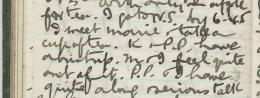 for tea. I go to N.S. by 6-45
I meet Marie & take a
cup of tea. K & P.P. have
a turn up. M & I feel quite
out of it. P.P. & I have
quite a long serious talk